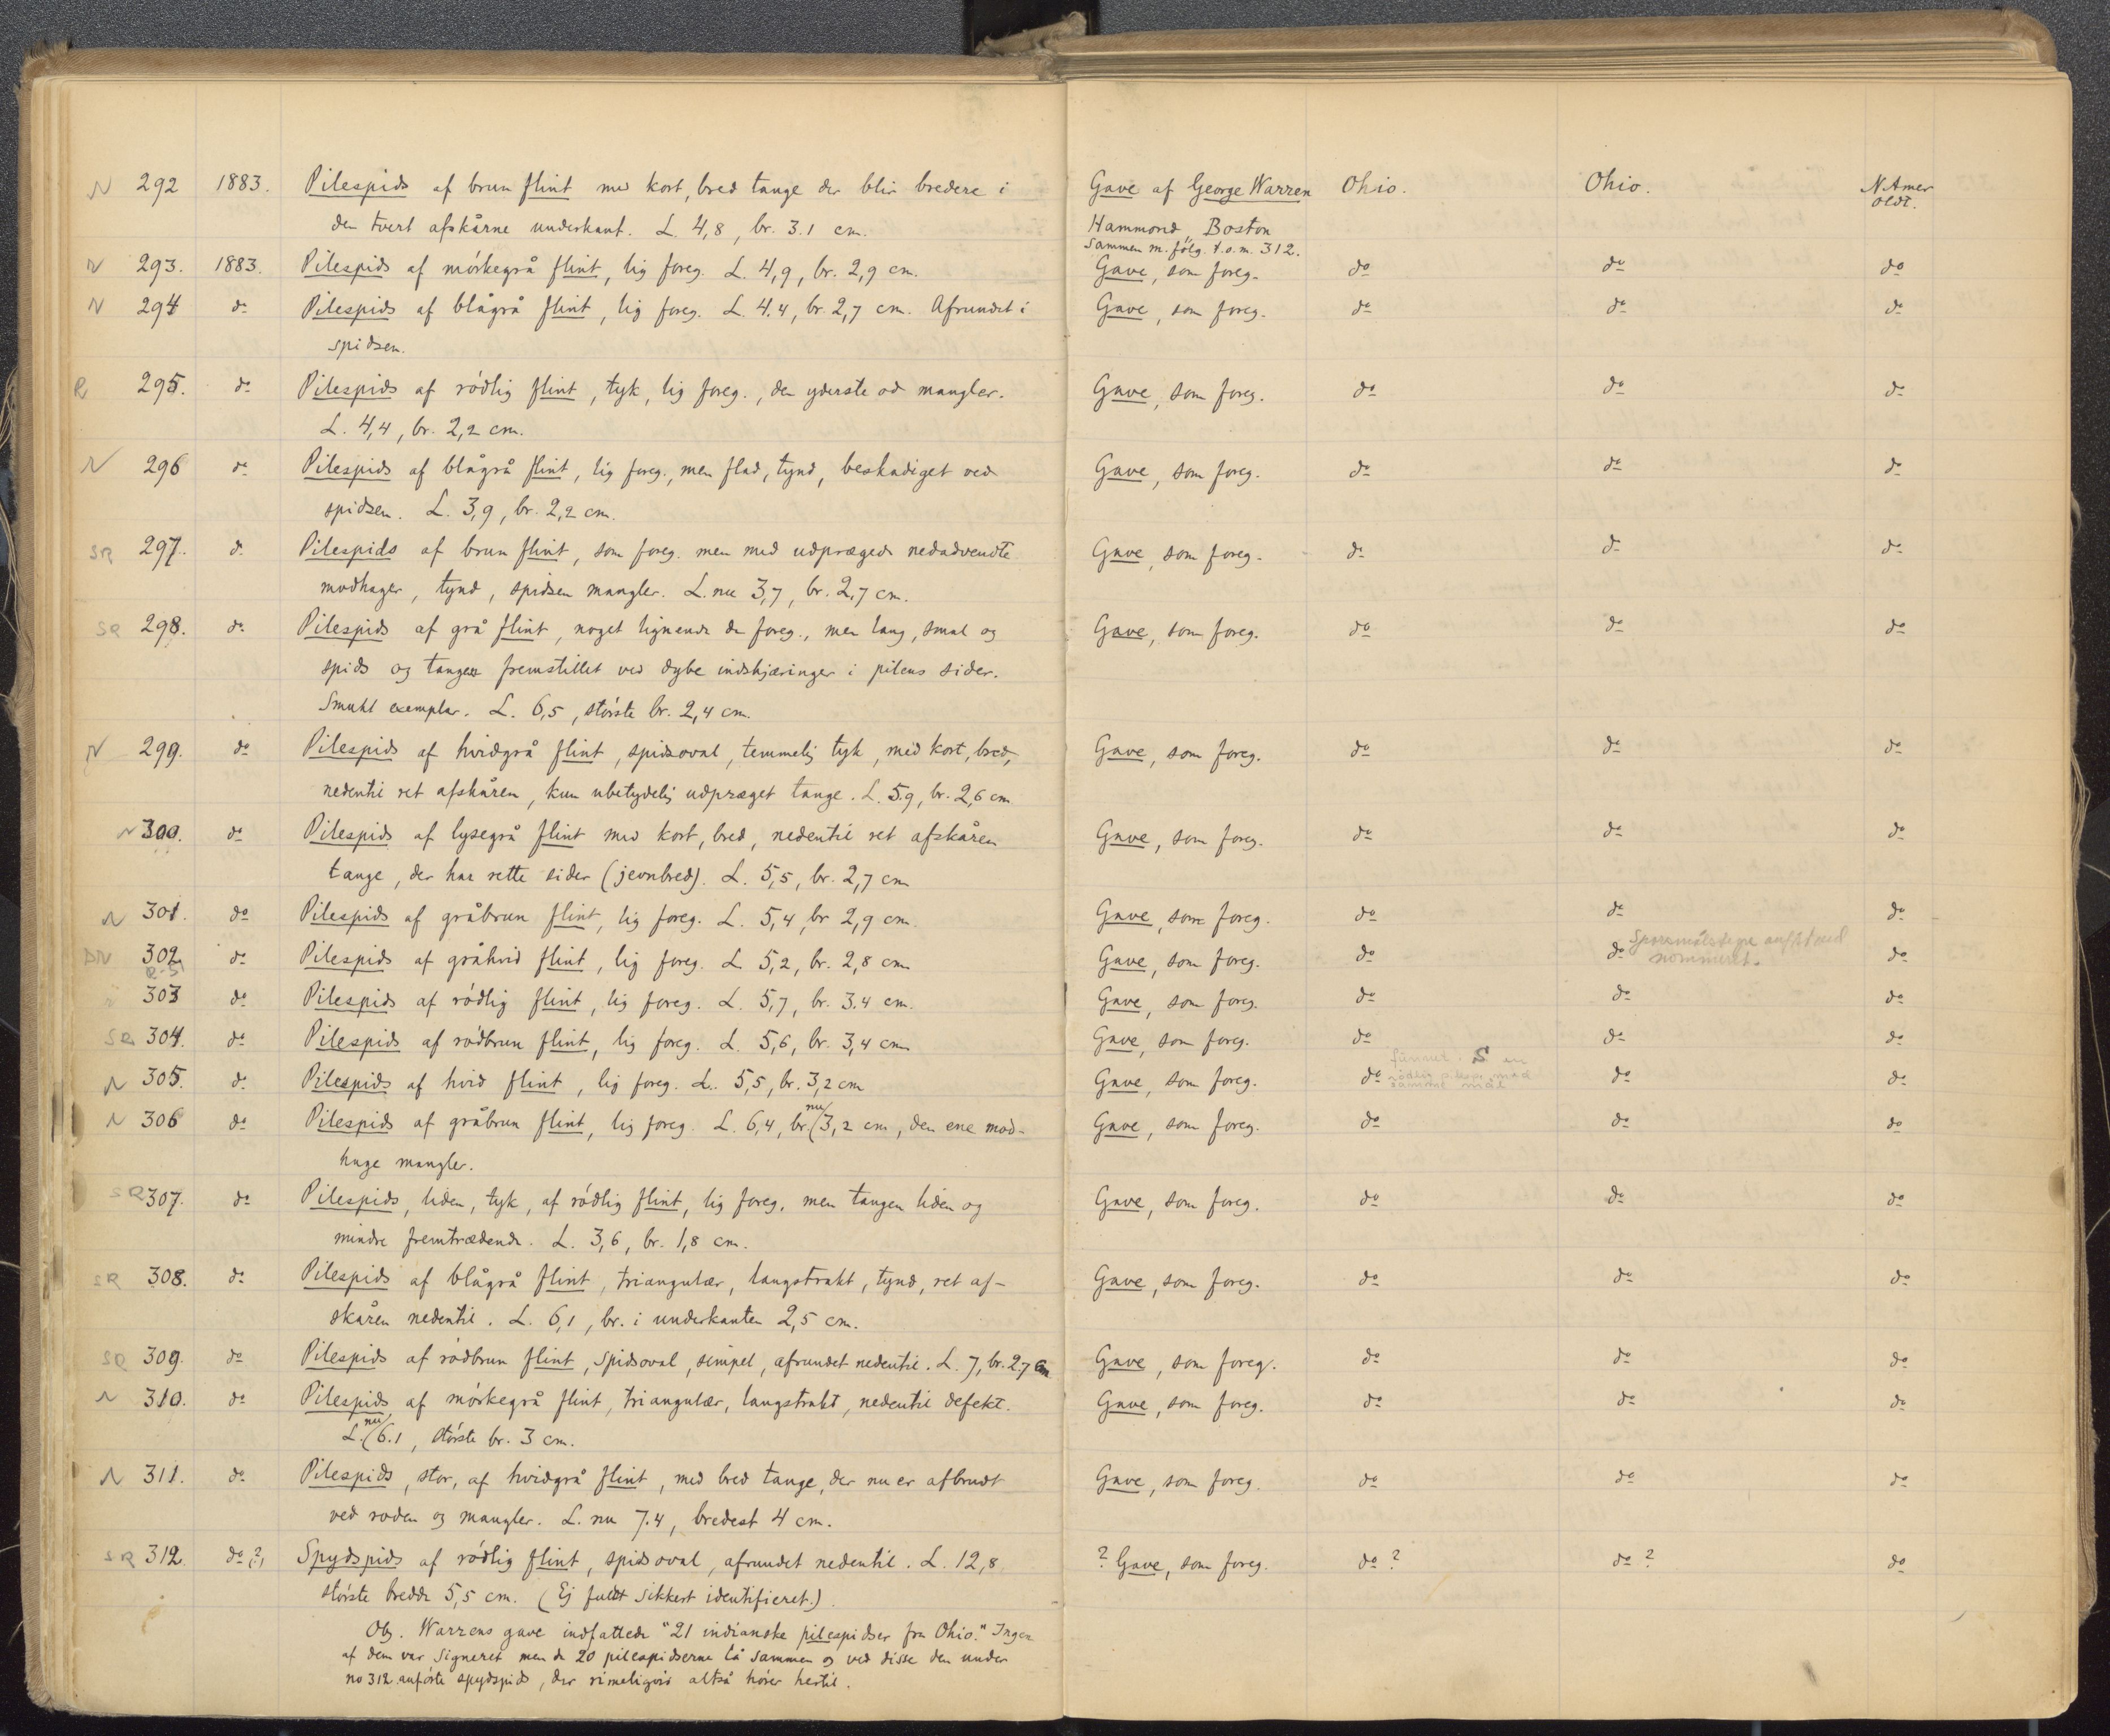 N 292 1883. Pilespids af brun flint med kort, bred tange der blir bredere i Gave af George Warren Ohio. Ohio. N Amer
den tvert afskårne underkant. L. 4,8, br. 3.1 cm. Hammond, Boston oldt.
sammen m. følg. t.o.m. 312.
N 293. 1883. Pilespids af mörkegrå flint, lig foreg. L. 4,9, br. 2,9 cm. Gave, som foreg. do do do
N 294 do Pilespids af blågrå flint, lig foreg. L. 4.4, br. 2,7 cm. Afrundet i Gave, som foreg. do do do
spidsen.
R 295. do Pilespids af rödlig flint, tyk, lig foreg., den yderste od mangler. Gave, som foreg. do do do
L. 4,4, br. 2,2 cm.
N 296 do Pilespids af blågrå flint, lig foreg., men flad, tynd, beskadiget ved Gave, som foreg. do do do
spidsen. L. 3,9, br. 2,2 cm.
SR 297. do Pilespids af brun flint, som foreg. men med udprægede nedadvendte Gave, som foreg. do do do
modhager, tynd, spidsen mangler. L. nu 3,7, br. 2,7 cm.
SR 298. do Pilespids af grå flint, noget lignende de foreg., men lang, smal og Gave, som foreg. do do do
spids og tangen fremstillet ved dybe indskjæringer i pilens sider.
Smukt exemplar. L. 6,5, störste br. 2,4 cm.
N 299. do Pilespids af hvidgrå flint, spidsoval, temmelig tyk, med kort, bred, Gave, som foreg. do do do
nedentil ret afskåren, kun ubetydelig udpræget tange. L. 5.9, br. 2,6 cm
N 300. do Pilespids af lysegrå flint med kort, bred, nedentil ret afskåren Gave, som foreg. do do do
tange, der har rette sider (jevnbred). L. 5,5, br. 2,7 cm
N 301. do Pilespids af gråbrun flint, lig foreg. L. 5,4, br 2,9 cm. Gave, som foreg. do do do
302 do Pilespids af gråhvid flint, lig foreg. L. 5,2, br. 2,8 cm Gave, som foreg. do do Spørsmålstegn ved do
nommeret.
303 do Pilespids af rödlig flint, lig foreg. L. 5,7, br. 3.4 cm. Gave, som foreg. do do do
SR 304. do Pilespids af rödbrun flint, lig foreg. L. 5,6, br. 3,4 cm Gave, som foreg. do do do
N 305. do Pilespids af hvid flint, lig foreg. L. 5,5, br. 3,2 cm Gave, som foreg. do do do
funnet. S en
rødlig med
samme mål
N 306 do Pilespids af gråbrun flint, lig foreg. L. 6,4, br. nu 3,2 cm, den ene mod- Gave, som foreg. do do do
hage mangler.
SR 307. do Pilespids, liden, tyk, af rödlig flint, lig foreg. men tangen liden og Gave, som foreg. do do do
mindre fremtrædende. L. 3,6, br. 1,8 cm.
SR 308. do Pilespids af blågrå flint, triangulær, langstrakt, tynd, ret af- Gave, som foreg. do do do
skåren nedentil. L. 6,1, br. i underkanten 2,5 cm.
SR 309. do Pilespids af rödbrun flint, spidsoval, simpel, afrundet nedentil. L. 7, br. 2.7 cm Gave, som foreg. do do do
N 310. do Pilespids af mörkegrå flint, triangulær, langstrakt, nedentil defekt. Gave, som foreg. do do do
L. nu 6.1, störste br. 3 cm.
N 311. do Pilespids, stor, af hvidgrå flint, med bred tange, der nu er afbrudt Gave, som foreg. do do do
ved roden og mangler. L. nu 7.4, bredest 4 cm.
SR 312. do (?) Spydspids af rödlig flint, spidsoval, afrundet nedentil. L. 12,8 ? Gave, som foreg. do ? do ? do
störste bredde 5,5 cm. (Ej fuldt sikkert identificeret.)
Obs. Warrens gave indfattede "21 indianske pilespidser fra Ohio." Ingen
af dem var signeret men de 20 pilespidserne lå sammen og ved disse den under
no 312 anförte spydspids, der rimeligvis altså hörer hertil.